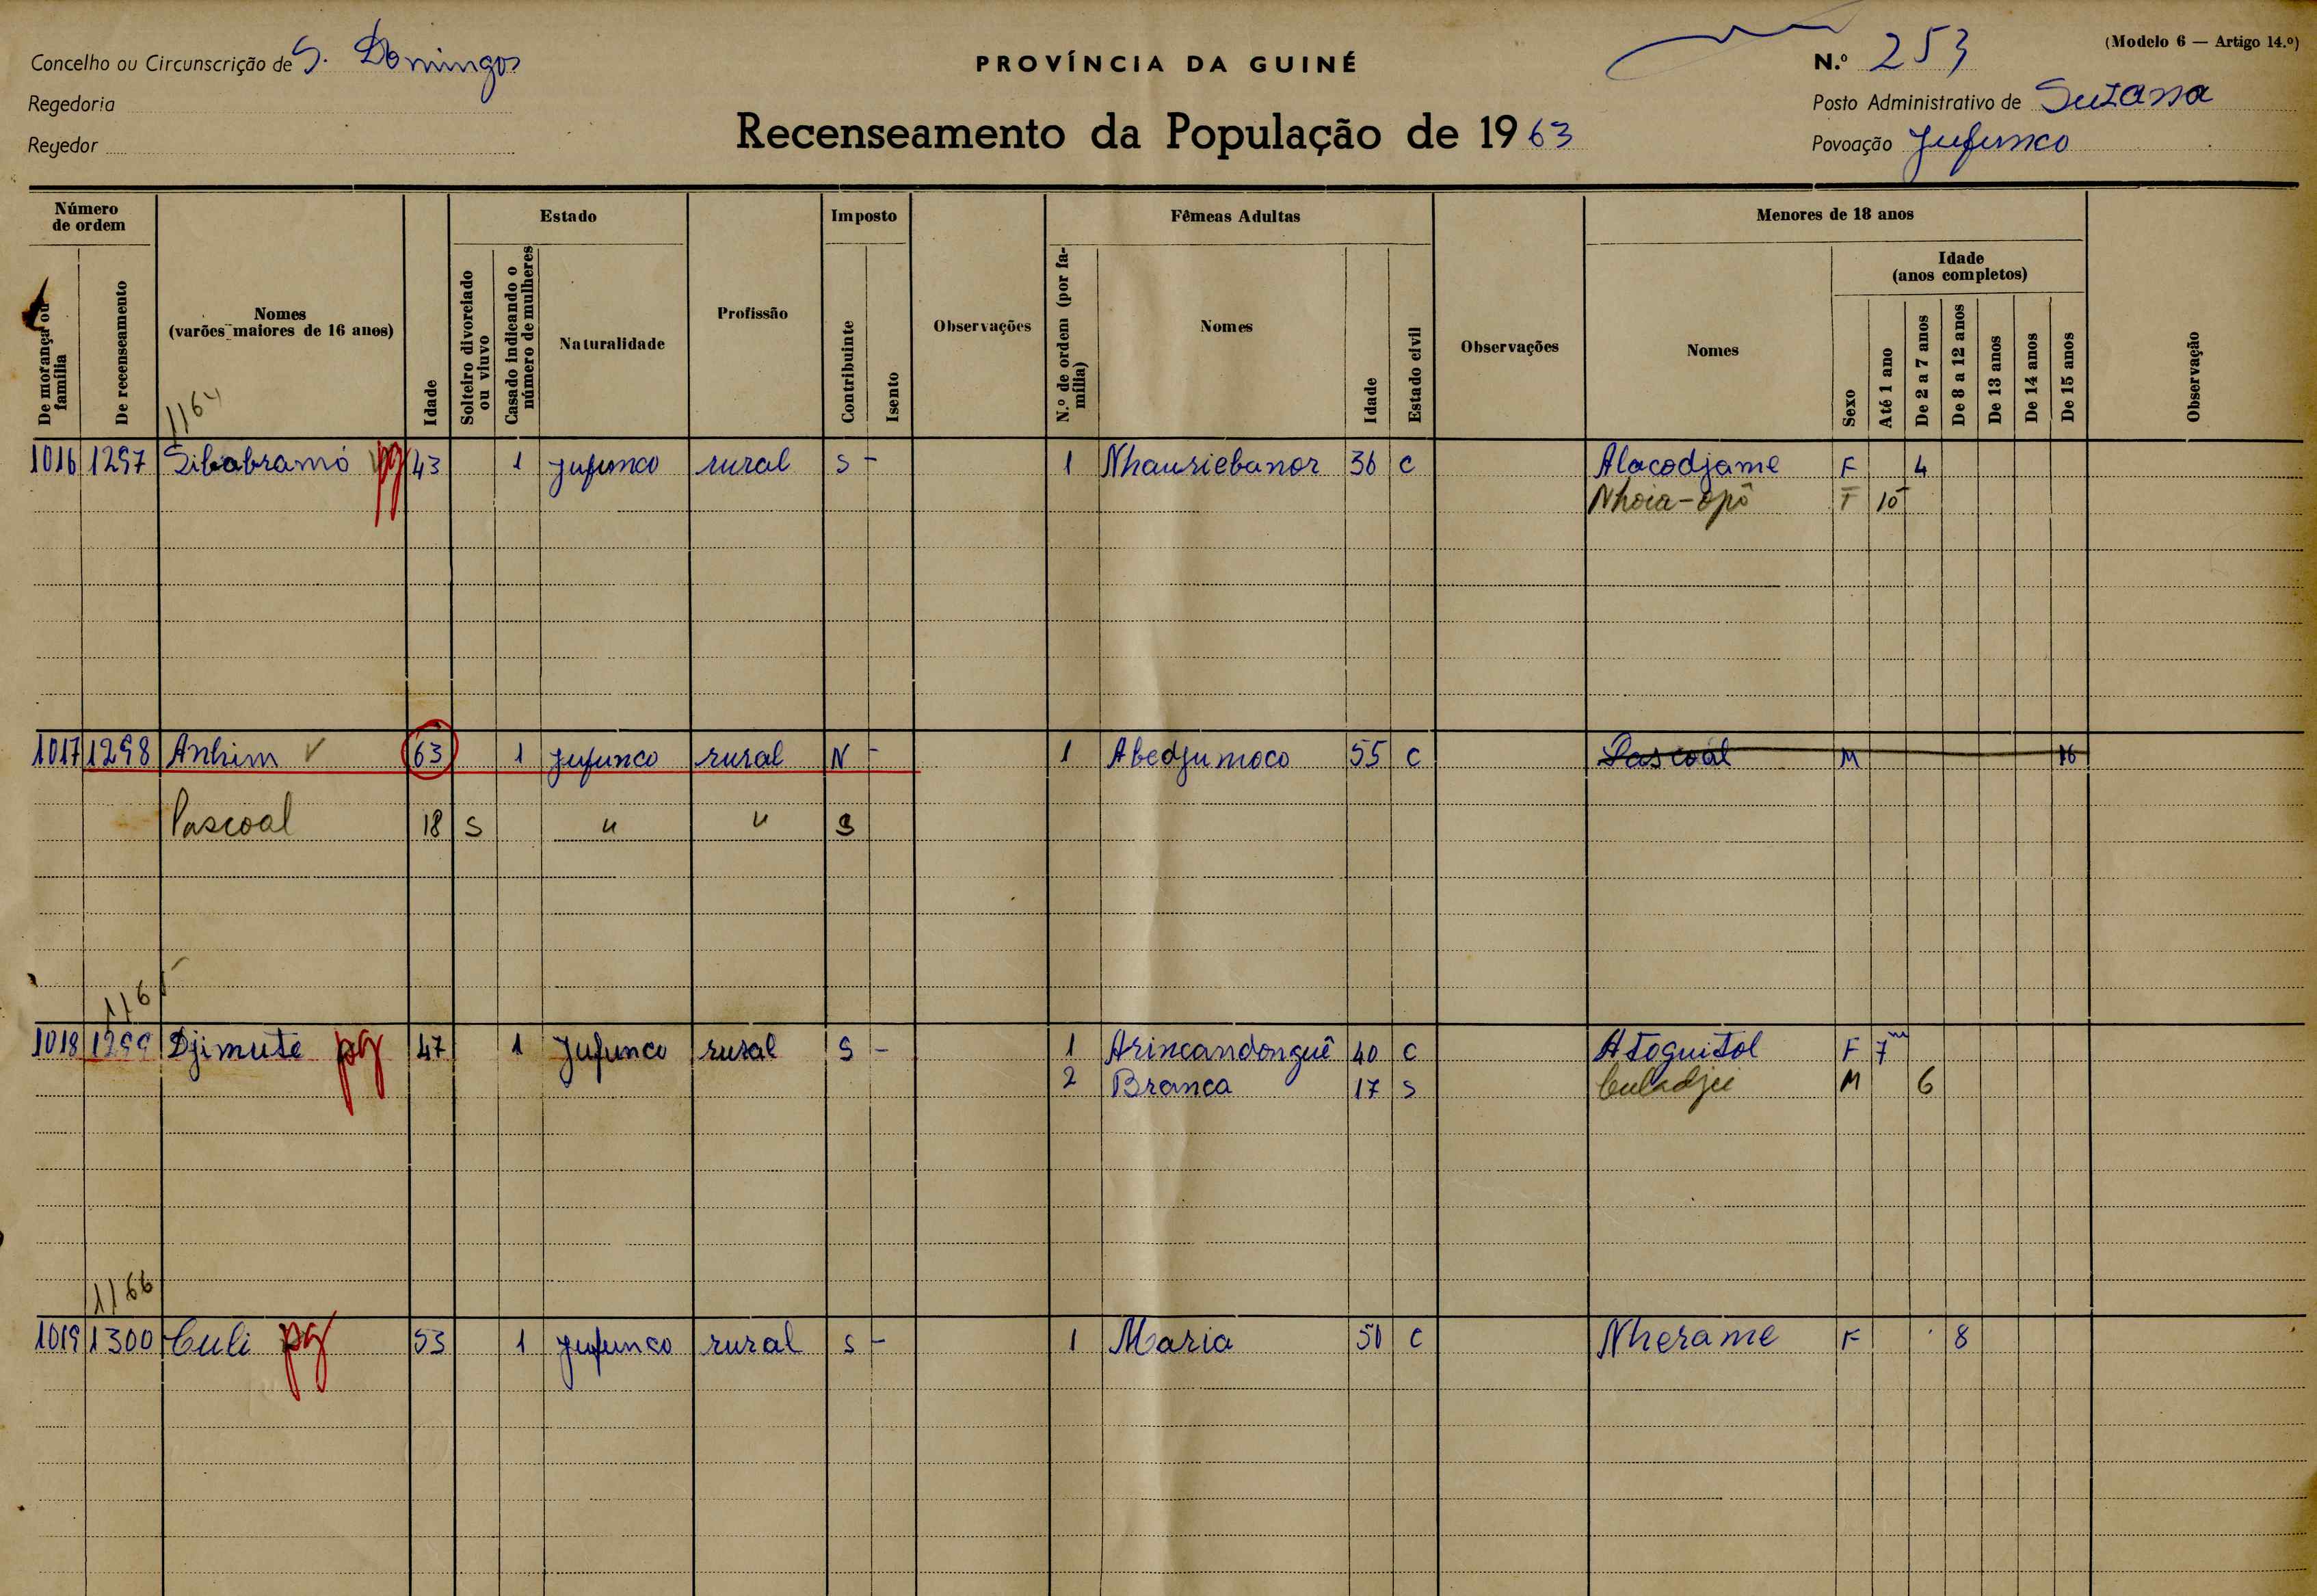 Concelho ou Circunscrição de S. Domingos
Regedoria
Reyedor
PROVÍNCIA DA GUINÉ
Recenseamento da População de 1963
(Modelo 6 — Artigo 14.º)
N.º 253
Posto Administrativo de Suzana
Povoação Jufunco
Número de ordem
De morança ou família
De recenseamento
Nomes (varões maiores de 16 anos)
Idade
Estado
Solteiro divorciado ou viuvo
Casado indicando o número de mulheres
Naturalidade
Profissão
Imposto
Contribuinte
Isento
Observações
Fêmeas Adultas
N.º de ordem (por família)
Nomes
Idade
Estado civil
Observações
Menores de 18 anos
Nomes
Sexo
Idade (anos completos)
Até 1 ano
De 2 a 7 anos
De 8 a 12 anos
De 13 anos
De 14 anos
De 15 anos
Observação
1164
1016 1297 Sibabramó pg 43 1 Jufunco rural S - 1 Nhausiebanor 36 C Alacodjame F 4
Nhoia-opô F
1017 1298 Anhim V 63 1 Jufunco rural N - 1 Abedjumoco 55 C Pascoal M 16
Pascoal 18 S " " S
1165
1018 1299 Djimute pg 47 1 Jufunco rural S - 1 Arincandonguê 40 C Atoguitol F 7m
2 Branca 17 S Culadjii M 6
1166
1019 1300 Culi pg 53 1 Jufunco rural S - 1 Maria 50 C Nherame F 8